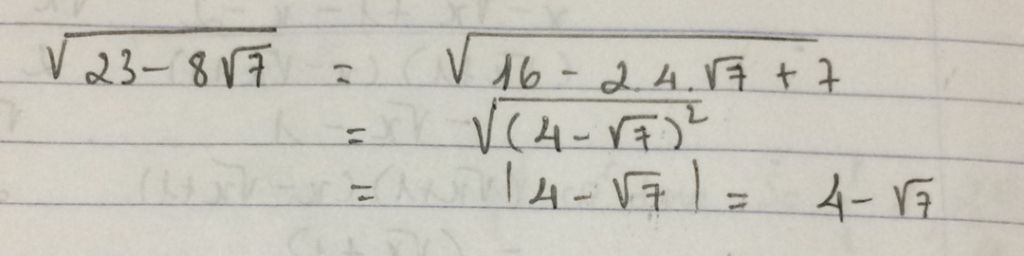 √(23 - 8√7) = √(16 - 2.4.√7 + 7)
= √((4 - √7)²)
= |4 - √7| = 4 - √7